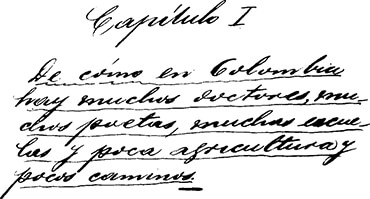 Capítulo I
De cómo en Colombia
hay muchos doctores, mu-
chos poetas, muchas escue-
las y poca agricultura y
pocos caminos.